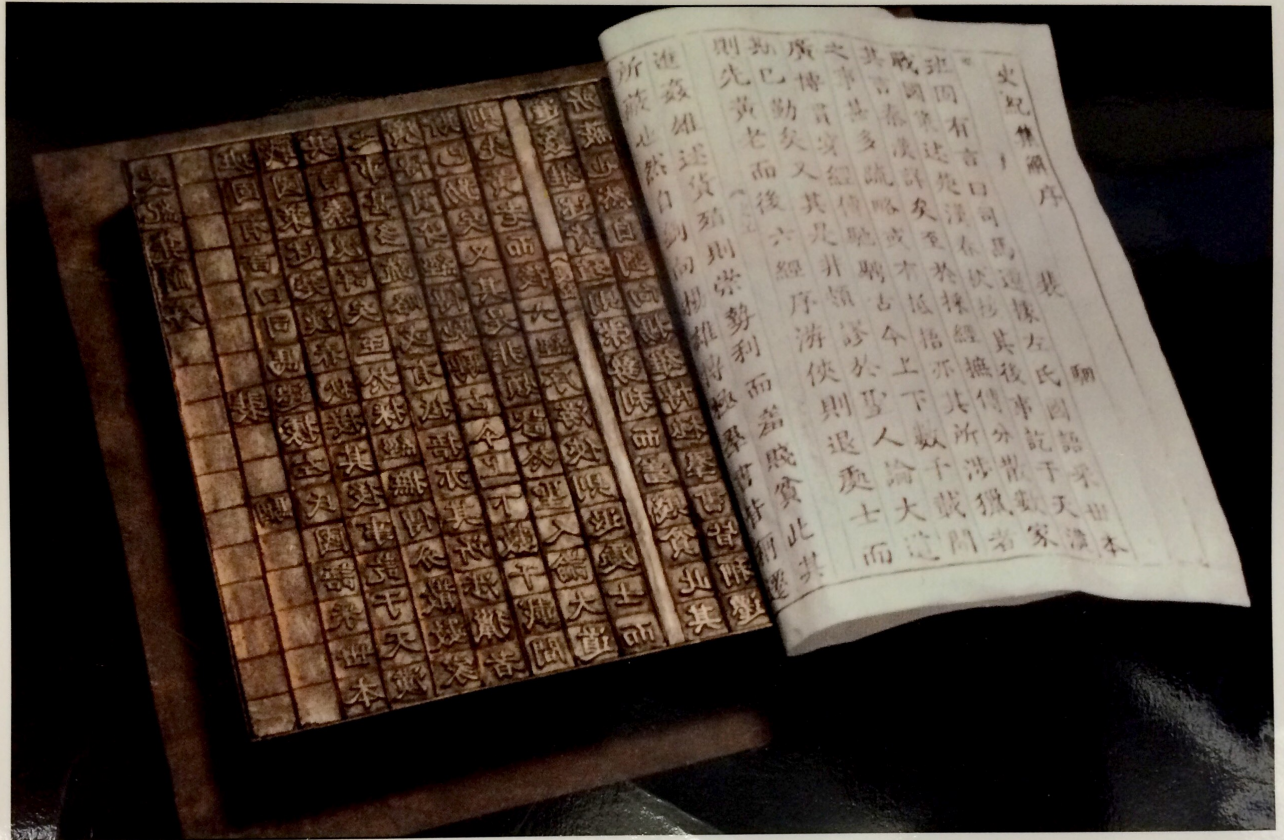 史紀集解序
裴駰
班固有言曰司馬遷據左氏國語采世本
戰國策述楚漢春秋接其後事訖于天漢
其言秦漢詳矣至於採經摭傳分散數家
之事甚多疏略或有抵捂亦其所涉獵者
廣博貫穿經傳馳騁古今上下數千載間
斯已勤矣又其是非頗謬於聖人論大道
則先黃老而後六經序游俠則退處士而
進姦雄述貨殖則崇勢利而羞賤貧此其
所蔽也然自劉向揚雄博極羣書皆稱遷